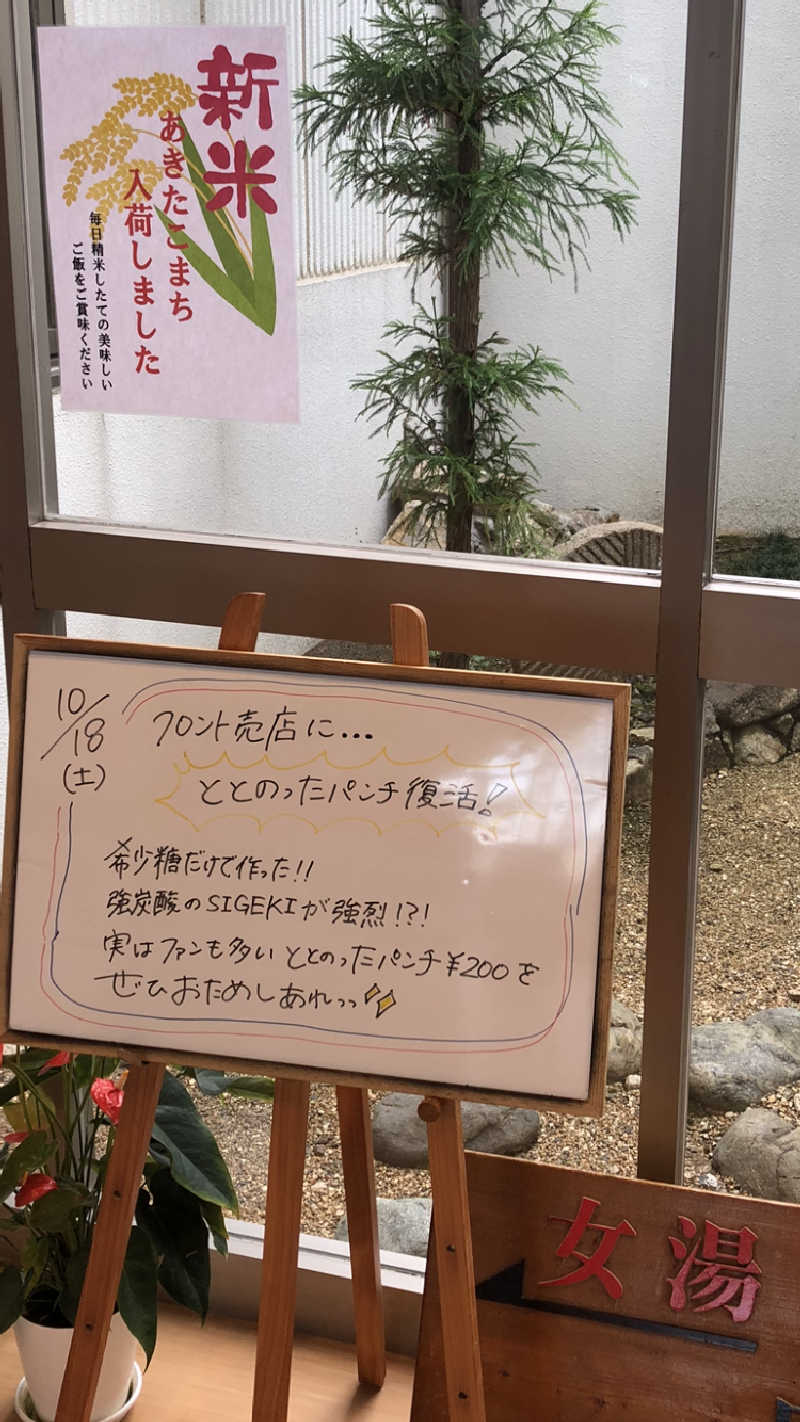 新米
あきたこまち
入荷しました
毎日精米したての美味しい
ご飯をご賞味ください
10/18
(土)
フロント売店に...
ととのったパンチ復活!
希少糖だけで作った!!
強炭酸のSIGEKIが強烈!?!
実はファンも多いととのったパンチ¥200を
ぜひおためしあれっっ
女湯